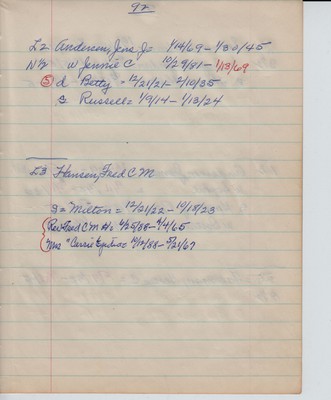 92
L2 Anderson, Jens J= 1/14/69 - 1/30/45
N½ w Jennie C 10/29/81 - 1/13/69
5 d Betty = 12/21/21 - 2/10/35
s Russell = 1/9/14 - 1/13/24
L3 Hansen, Fred C M
s = Milton = 12/21/22 - 10/15/23
Rev Fred C M H= 4/25/88 - 4/4/65
Mrs " Carrie = 10/12/88 - 5/21/67